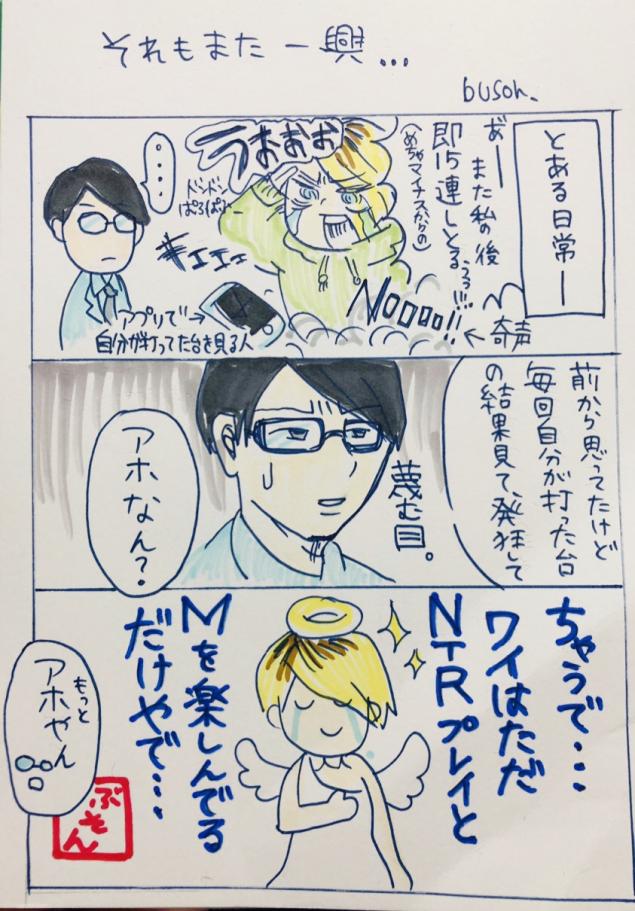 それもまた一興…
buson.
とある日常ー
あ゛ー
また私の後
即15連しとるぅぅぅ!!!
(めちゃマイナスからの)
うおぉぉぉ
ドンドン
ぱふぱふ
ギエエエ
Noooo!!
←奇声
アプリで→
自分が打ってた台を見る人
・・・・
前から思ってたけど
毎回自分が打った台
の結果見て、発狂して
アホなん?
蔑む目。
ちゃうで・・・
ワイはただ
NTRプレイと
Mを楽しんでる
だけやで・・・
もっと
アホやん
ぶそん